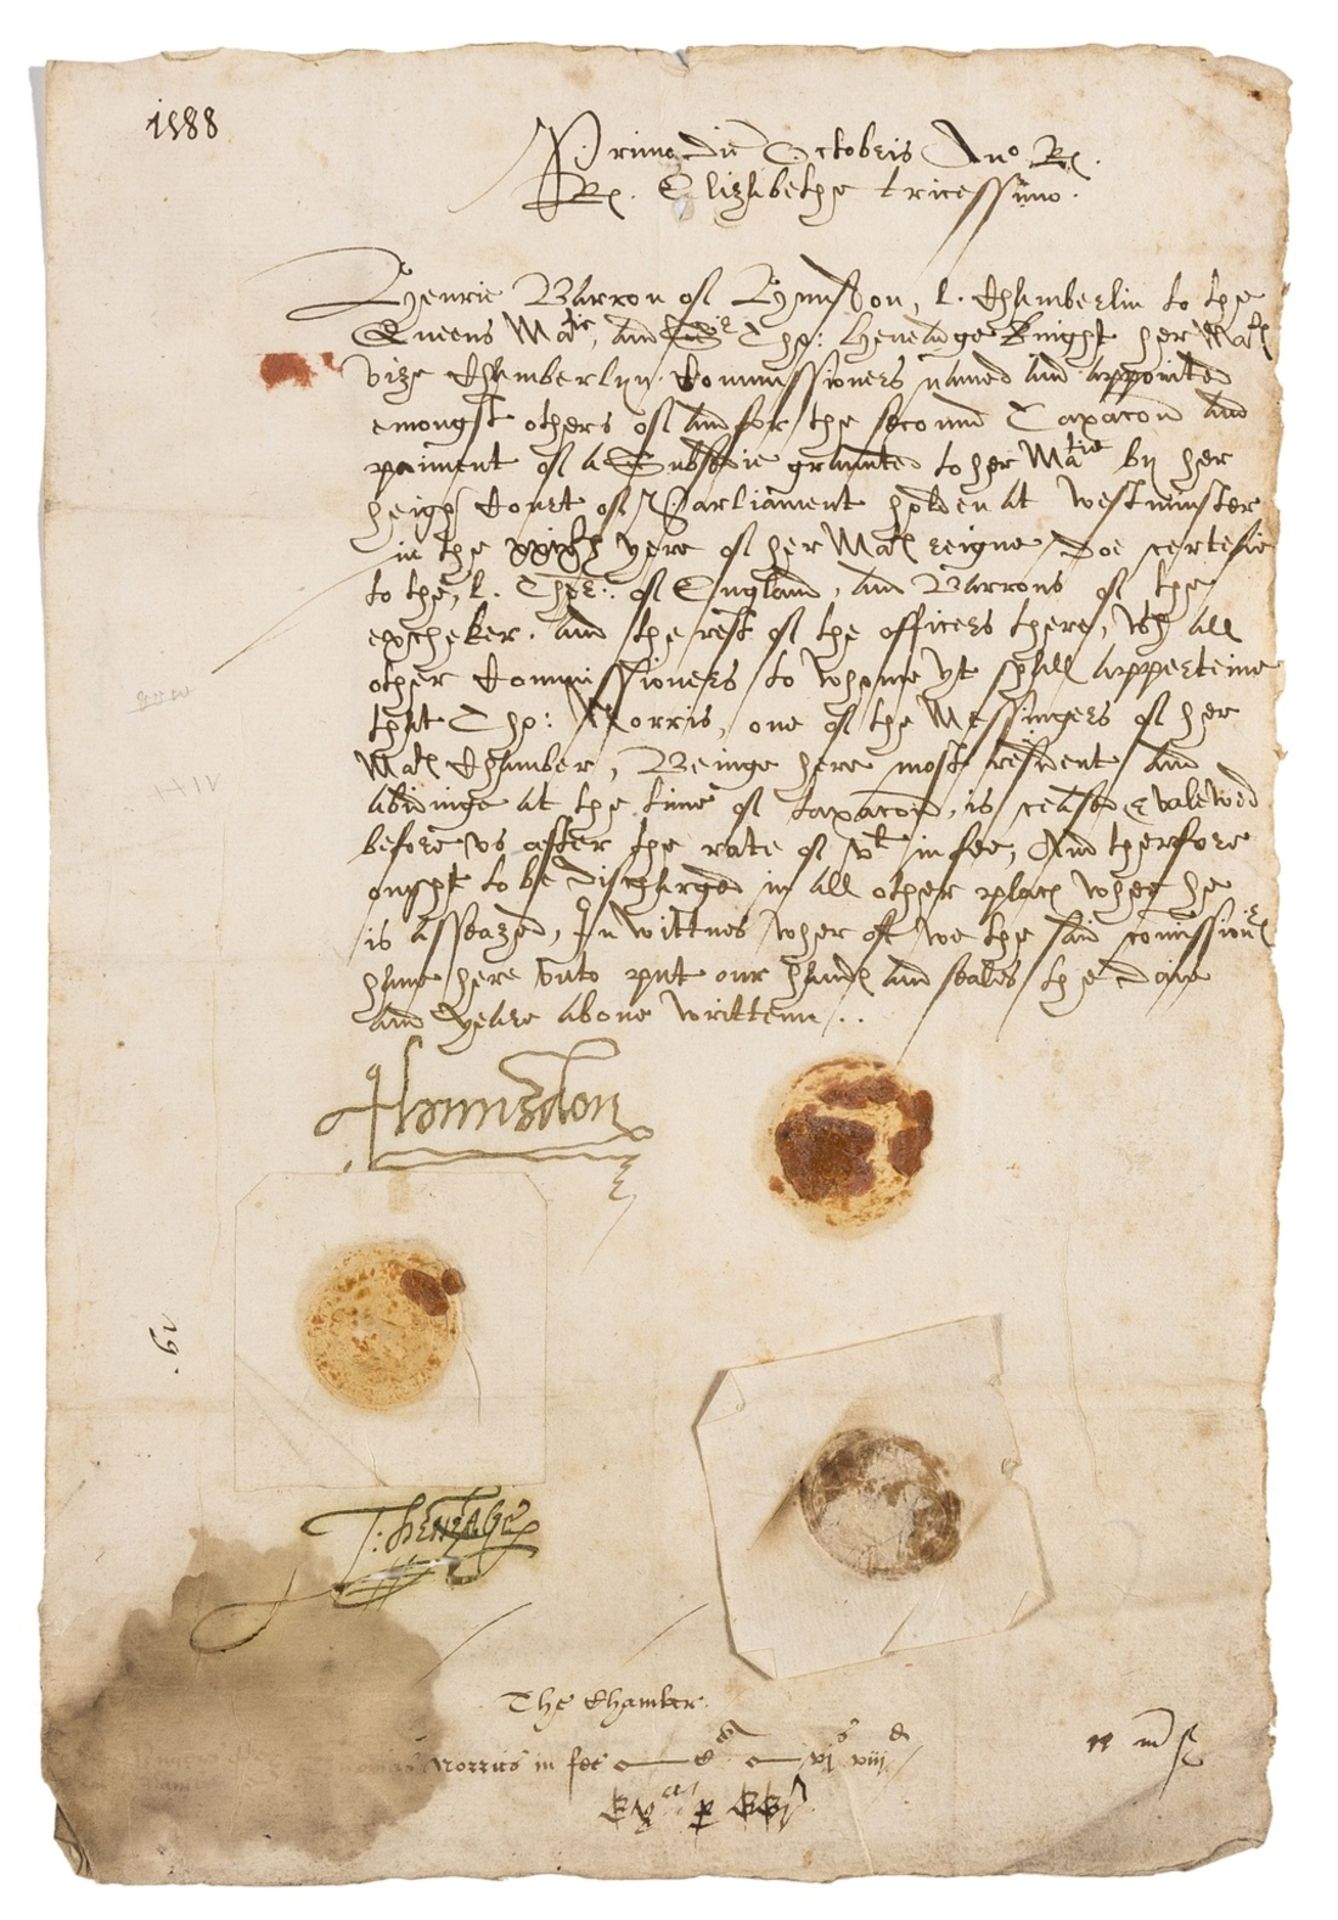 1588
Primo die Octobris Ano RRx.
Rx. Elizabethe tricessimo.
Henrie Barron of Hunsdon, l. Chamberlin to the
Queens Matie, and Sr Tho: Heneadge Knight her Mats
vize Chamberlyn. Commissioners named and appointed
emongst others of and for the second Taxacon and
paiment of a Subsedie graunted to her Matie by her
heigh Court of Parliament holden at Westminster
in the yere of her Mats reigne, Doe certefie
to the, l. Thr: of England, and Barrons of the
excheker. and the rest of the officers there, wth all
other Commissioners to whome yt shall apperteine
that Tho: Norris, one of the Messingers of her
Mats Chamber, Beinge here most resident and
abidinge at the time of taxacon, is ceased & valewed
before us after the rate of vl in fee, And therfore
ought to be discharged in all other places where he
is asseazed, In wittnes wher of we the said comissioners
have here vnto put our hands and seales the daie
and yeare above written..
Hunsdon
29.
T: Heneage
The Chamber.
Norris in fee vjs viijd